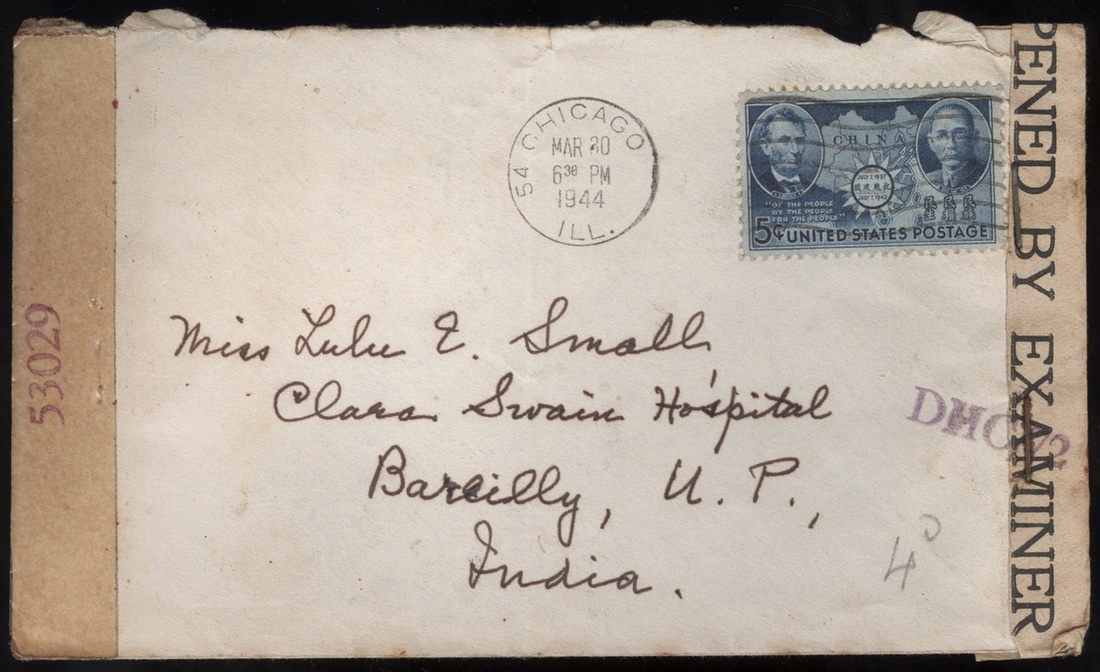 54 CHICAGO
MAR 30
6 30 PM
1944
ILL.
CHINA
JULY 7, 1937
JULY 7, 1942
"OF THE PEOPLE
BY THE PEOPLE
FOR THE PEOPLE"
5¢ UNITED STATES POSTAGE
PENED BY EXAMINER
53029
DHC
Miss Lulu E. Small
Clara Swain Hospital
Bareilly, U. P.,
India.
4D